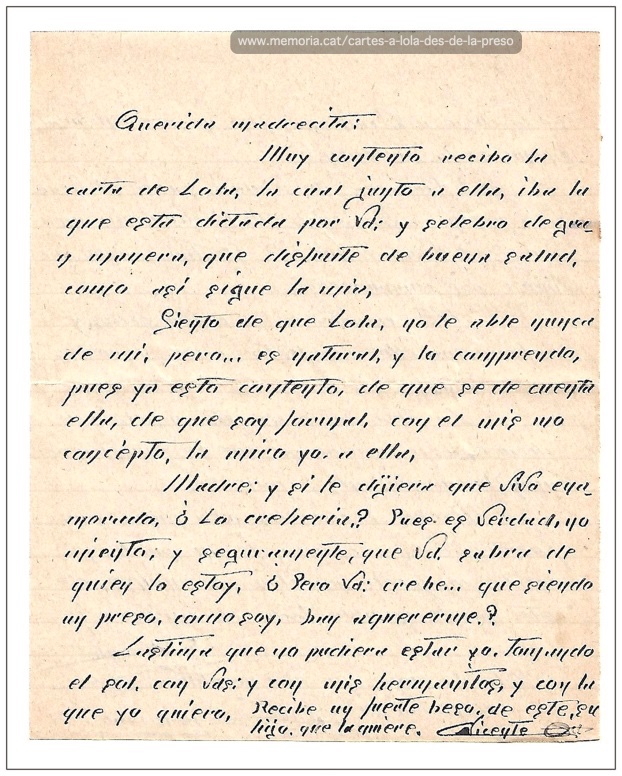 www.memoria.cat/cartes-a-lola-des-de-la-preso
Querida madrecita:
Muy contento recibo la
carta de Lola, la cual junto a ella, iba la
que esta dictada por Vd; y selebro de gra-
n manera, que disfrute de buena salud,
como asi sigue la mia,
Siento de que Lola, no le able nunca
de mi, pero... es natural, y la comprendo,
pues ya esto contento, de que se de cuenta
ella, de que soy formal, con el mis mo
concépto, la miro yo. a ella,
Madre; y si le dijiera que Vivo ena-
morado, ò La creheria? Pues es Verdad, no
miento; y seguramente, que Vd. sabra de
quien lo estoy, ò Pero Vd: crehe... que siendo
un preso, como soy, han aquererme.?
Lastima que no pudiera estar yo. Tomando
el sol, con Vds; y con mis hermanitos, y con la
que yo quiero, Recibe un fuerte beso, de este, su
hijo, que la quiere. Vicente